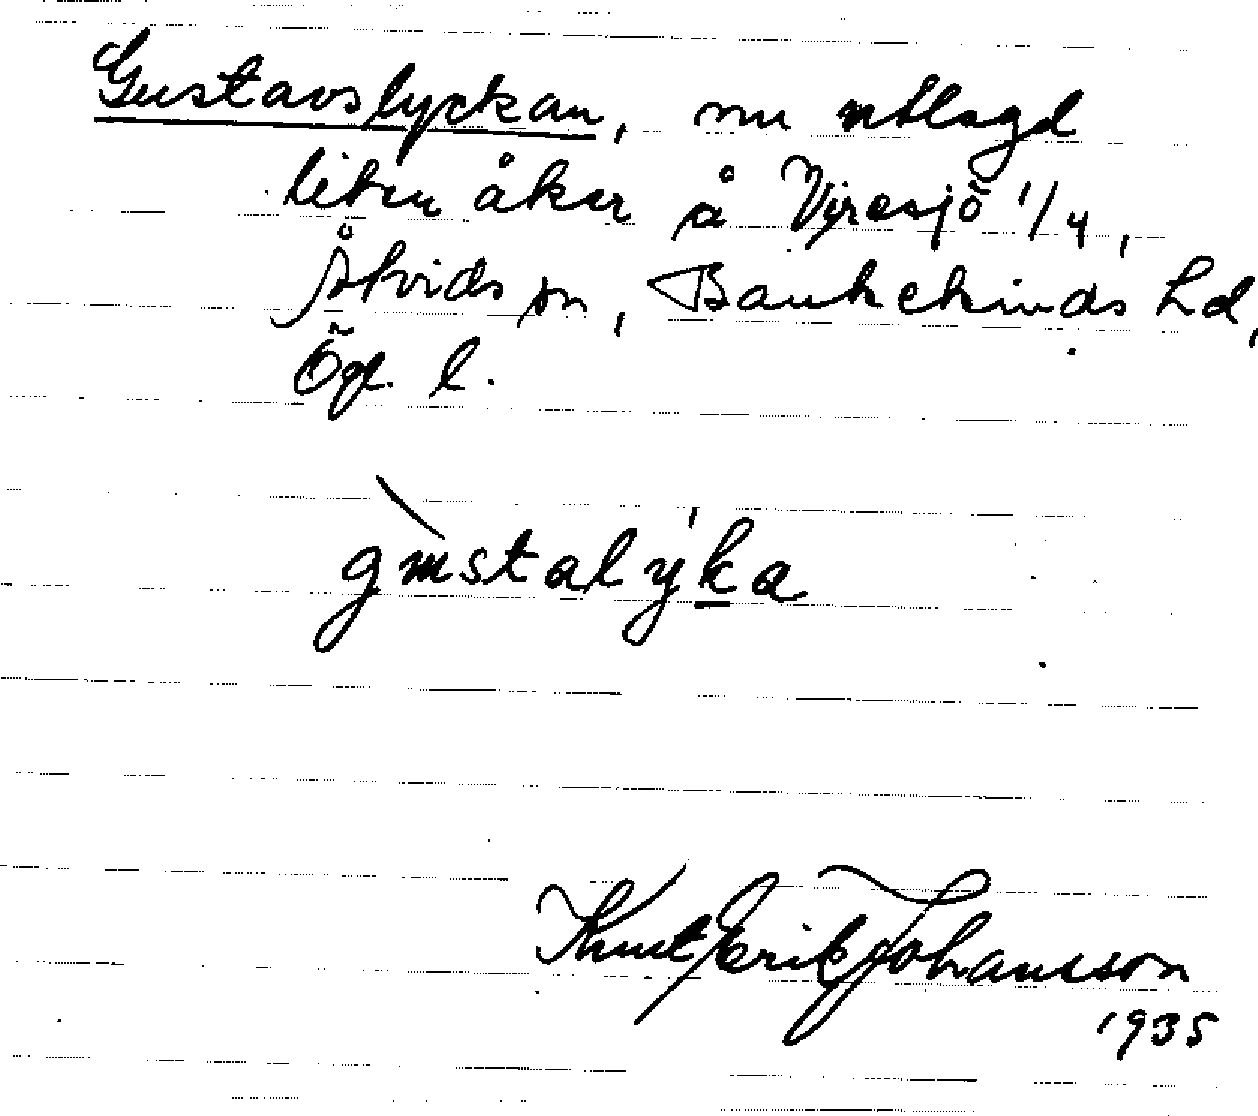 Gustavslyckan, nu utlagd
liten åker å Vyresjö 1/4,
Åtvids sn, Bankekinds hd,
Ögl. l.
gustalyka
Knut Erik Johansson
1935